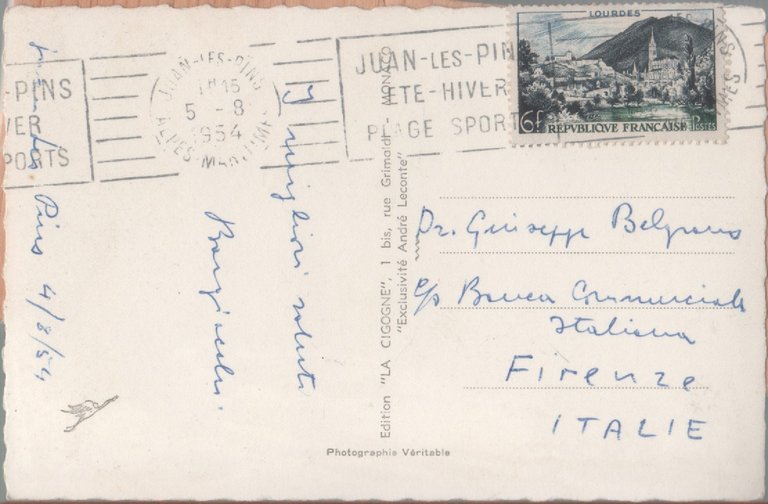 LOURDES
6f RÉPVBLIQVE FRANÇAISE POSTES
JUAN-LES-PINS
5 -8
1954
ALPES-MARITIMES
JUAN-LES-PIN
ETE-HIVER
PLAGE SPORT
-PINS
VER
PORTS
Juan les Pins 4/8/54
I migliori saluti
Edition "LA CIGOGNE", 1 bis, rue Grimaldi - MONACO
"Exclusivité André Leconte"
Dr. Giuseppe Belgrano
c/o Banca Commerciale
Italiana
Firenze
ITALIE
Photographie Véritable